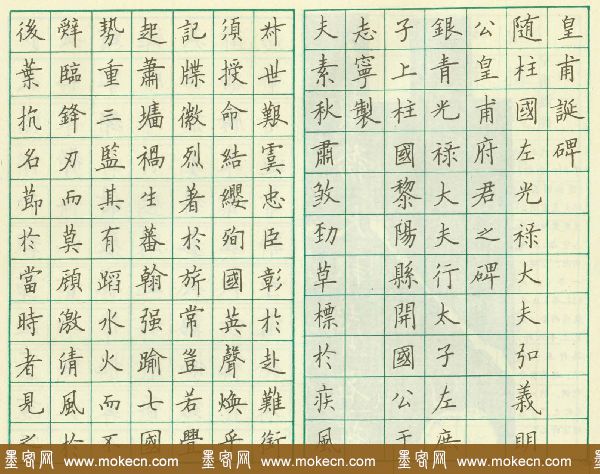 皇甫誕碑
随柱國左光禄大夫弘義明
公皇甫府君之碑
銀青光禄大夫行太子左庶
子上柱國黎陽縣開國公于
志寧製
夫素秋肅煞勁草標於疾風
叔世艱虞忠臣彰於赴難銜
須授命結纓殉國英聲煥乎
記牒徽烈著於旂常豈若舋
起蕭墻禍生蕃翰强踰七國
勢重三監其有蹈水火而不
辤臨鋒刃而莫顧激清風於
後葉抗名節於當時者見
墨客网 www.mokecn.com 墨客网 www.mokecn.com 墨客网 www.mokecn.com